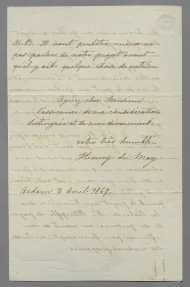 N.B. Il vaut peut être mieux ne
pas parler de notre projet avant
qu'il y ait quelque chose de certain
Agréez cher Monsieur
l'assurance de ma considération
distinguée et de mon dévouement
votre très humble
Henry de May
2 avril 1867.